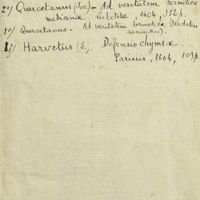 2º/ Quercetanus (Jos.) - Ad veritatem hermeticae
medicinae 1604, 112 p.
3º/ Quercetanus. - Ad veritatem hermeticae
4º/ Harvetus (I.) Defensio Chymiae...
Parisiis, 1604, 109 p